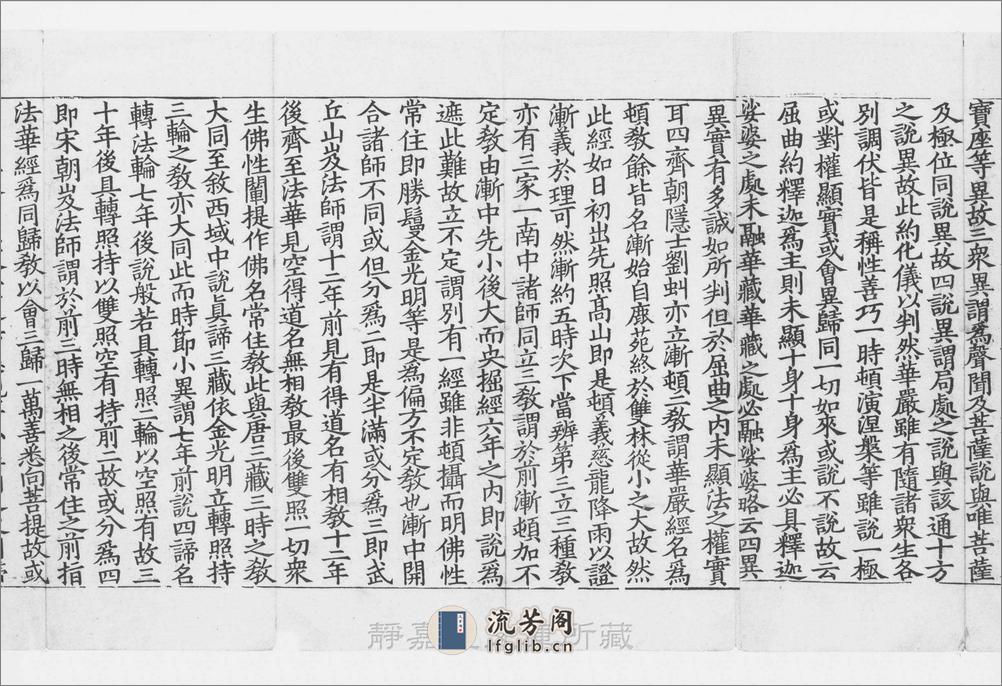 寶座等異故三衆異謂爲聲聞及菩薩說與唯菩薩
及極位同說異故四說異謂局處之說與該通十方
之說異故此約化儀以判然華嚴雖有隨諸衆生各
別調伏皆是稱性善巧一時頓演涅槃等雖說一極
或對權顯實或會異歸同一切如來或說不說故云
屈曲約釋迦爲主則未顯十身十身爲主必具釋迦
娑婆之處未融華藏華藏之處必融娑婆略云四異
異實有多誠如所判但於屈曲之內未顯法之權實
耳四齊朝隱士劉虬亦立漸頓二教謂華嚴經名爲
頓教餘皆名漸始自鹿苑終於雙林從小之大故然
此經如日初出先照高山即是頓義慈龍降雨以證
漸義於理可然漸約五時次下當辨第三立三種教
亦有三家一南中諸師同立三教謂於前漸頓加不
定教由漸中先小後大而央掘經六年之內即說爲
遮此難故立不定謂別有一經雖非頓攝而明佛性
常住即勝鬘金光明等是爲偏方不定教也漸中開
合諸師不同或但分爲二即是半滿或分爲三即武
丘山岌法師謂十二年前見有得道名有相教十二年
後齊至法華見空得道名無相教最後雙照一切衆
生佛性闡提作佛名常住教此與唐三藏三時之教
大同至敘西域中說眞諦三藏依金光明立轉照持
三輪之教亦大同此而時節小異謂七年前說四諦名
轉法輪七年後說般若具轉照二輪以空照有故三
十年後具轉照持以雙照空有持前二故或分爲四
即宋朝岌法師謂於前三時無相之後常住之前指
法華經爲同歸教以會三歸一萬善悉向菩提故或
靜嘉 所藏
流芳阁
lfglib.cn